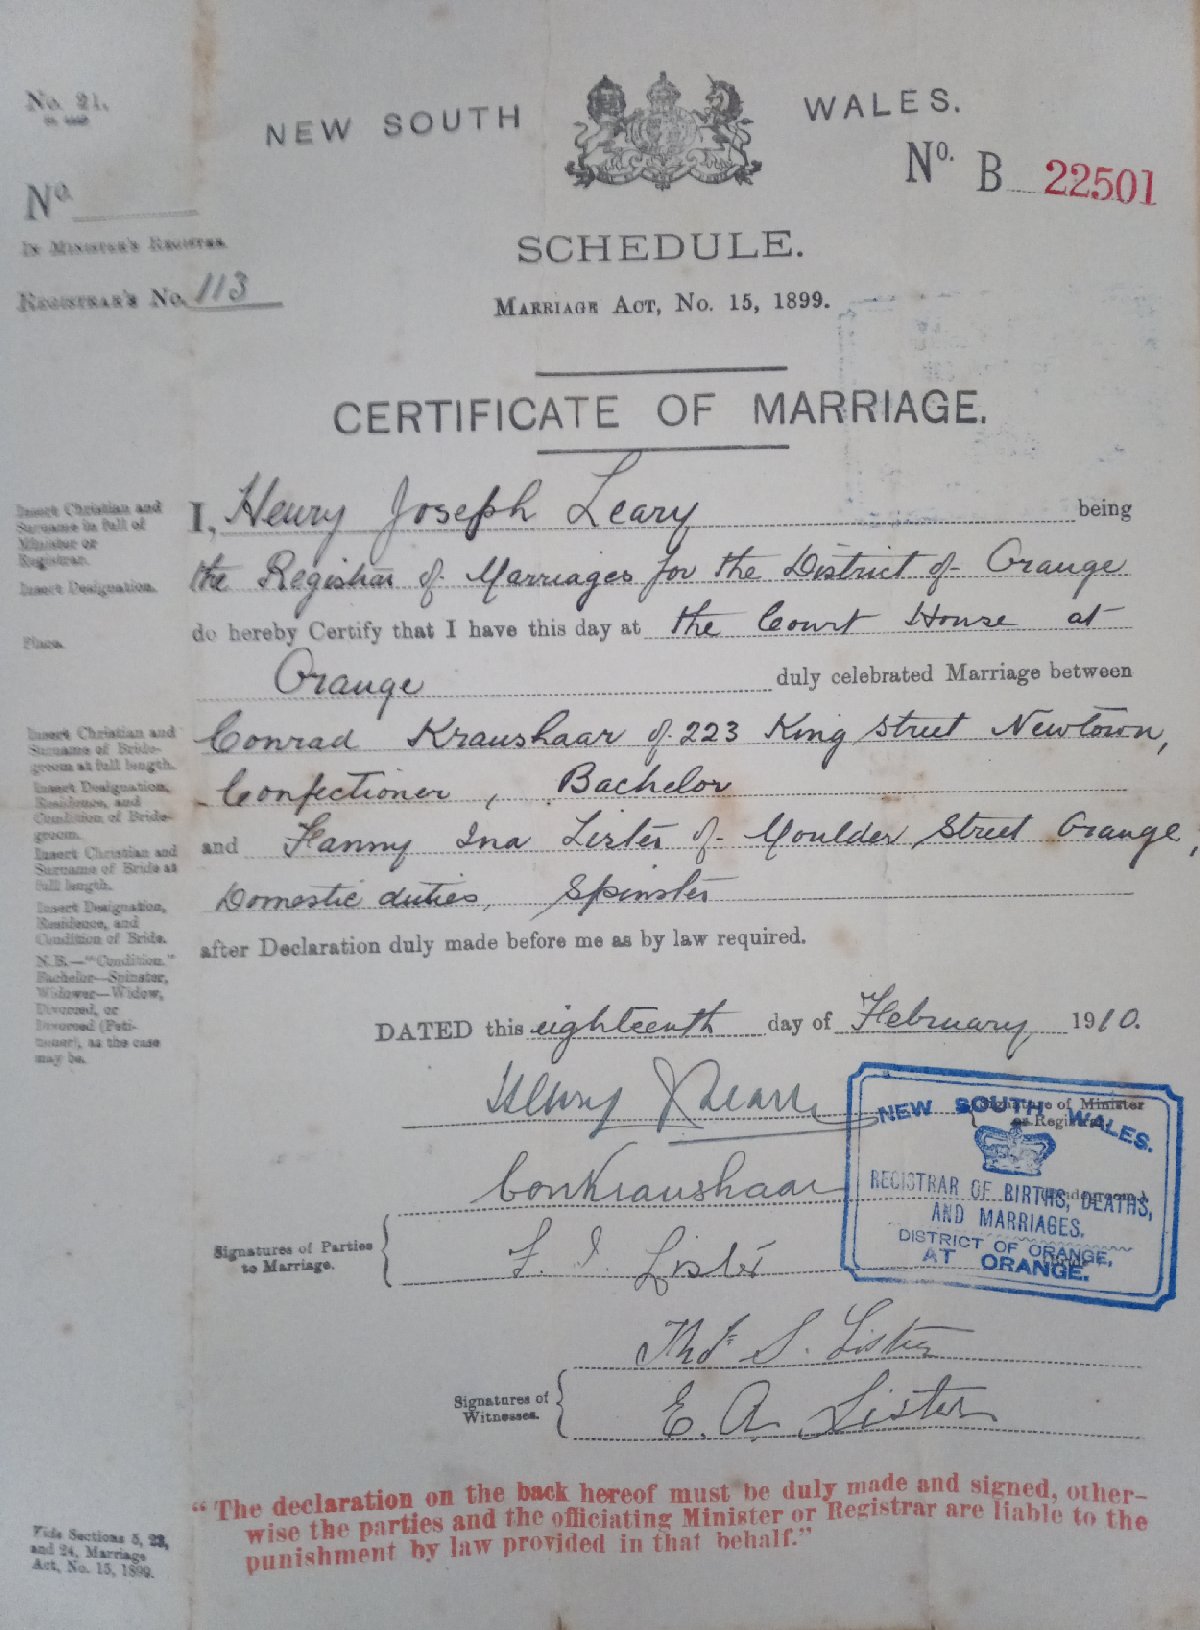 No. 21.
NEW SOUTH WALES.
No. B 22501
No.
In Minister's Register.
Registrar's No. 113
SCHEDULE.
Marriage Act, No. 15, 1899.
CERTIFICATE OF MARRIAGE.
Insert Christian and
Surname in full of
Minister or
Registrar.
I, Henry Joseph Leary being
Insert Designation.
the Registrar of Marriages for the District of Orange
Place.
do hereby Certify that I have this day at the Court House at
Orange duly celebrated Marriage between
Insert Christian and
Surname of Bride-
groom at full length.
Conrad Kraushaar of 223 King Street Newtown,
Insert Designation,
Residence, and
Condition of Bride-
groom.
Confectioner, Bachelor
Insert Christian and
Surname of Bride at
full length.
and Fanny Ina Lister of Moulder Street Orange,
Insert Designation,
Residence, and
Condition of Bride.
Domestic duties, Spinster
N.B.—"Condition."
Bachelor—Spinster,
Widower—Widow,
Divorced, or
Divorced (Peti-
tioner), as the case
may be.
after Declaration duly made before me as by law required.
DATED this eighteenth day of February 1910.
Henry J Leary
Signature of Minister
or Registrar.
NEW SOUTH WALES.
REGISTRAR OF BIRTHS, DEATHS,
AND MARRIAGES.
DISTRICT OF ORANGE,
AT ORANGE.
Signatures of Parties
to Marriage.
Con Kraushaar
F. I. Lister
Signatures of
Witnesses.
Thos S. Lister
E. A. Lister
"The declaration on the back hereof must be duly made and signed, other-
wise the parties and the officiating Minister or Registrar are liable to the
punishment by law provided in that behalf."
Vide Sections 5, 23,
and 24, Marriage
Act, No. 15, 1899.